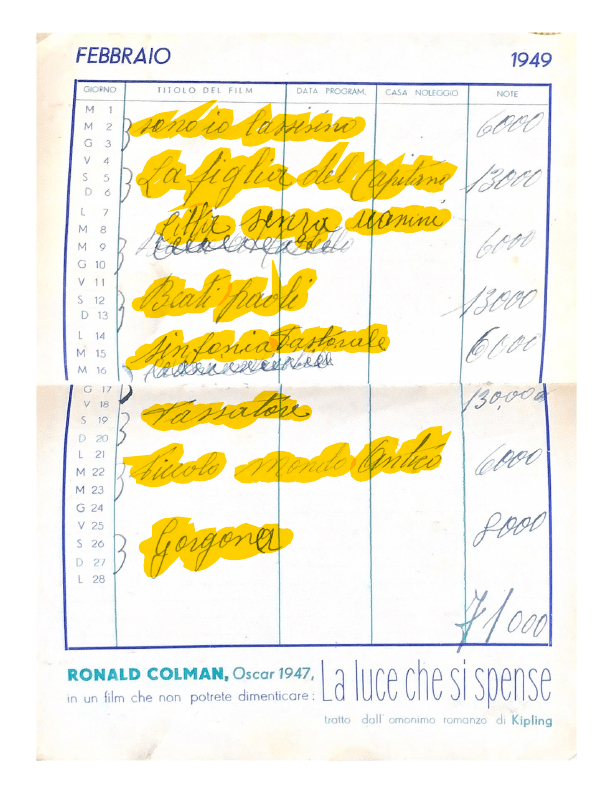 FEBBRAIO 1949
GIORNO TITOLO DEL FILM DATA PROGRAM. CASA NOLEGGIO NOTE
M 1
M 2 sono io l'assisino 6000
G 3
V 4
S 5 La figlia del Capitano 13000
D 6
L 7
M 8 città senza uomini
M 9 6000
G 10
V 11
S 12 Beati paoli 13000
D 13
L 14
M 15 sinfonia Pastorale 6000
M 16
G 17 13000
V 18
S 19 Vassatore
D 20
L 21
M 22 Piccolo mondo Antico 6000
M 23
G 24
V 25
S 26 Gorgona 8000
D 27
L 28
71000
RONALD COLMAN, Oscar 1947,
in un film che non potrete dimenticare: La luce che si spense
tratto dall' omonimo romanzo di Kipling